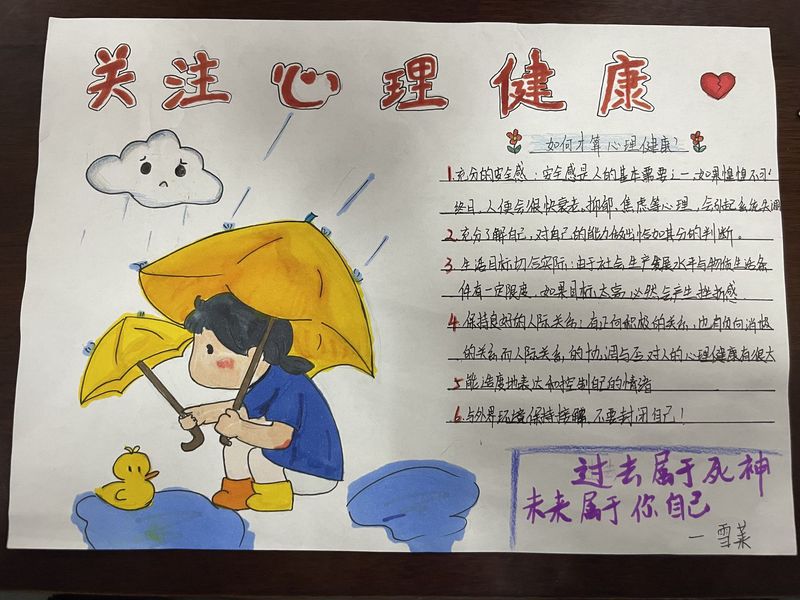 关注心理健康
如何才算心理健康?
1.充分的安全感:安全感是人的基本需要之一,如果惶惶不可
终日,人便会很快衰老。抑郁、焦虑等心理,会引起系统失调
2.充分了解自己,对自己的能力做出恰如其分的判断。
3.生活目标切合实际:由于社会生产发展水平与物质生活条
件有一定限度,如果目标太高,必然会产生挫折感
4.保持良好的人际关系:有正向积极的关系,也有负向消极
的关系而人际关系的协调与否对人的心理健康有很大
5能适度地表达和控制自己的情绪
6.与外界环境保持接触,不要封闭自己!
过去属于死神
未来属于你自己
—雪莱